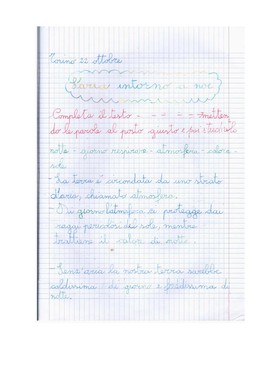 Torino 22 ottobre
L'aria intorno a noi
Completa il testo - - = = - metten
do le parole al posto giusto e poi
notte - giorno respirare - atmosfera - calore -
sole
- La terra è circondata da uno strato
d'aria, chiamato atmosfera.
- Di giorno l'atmosfera ci protegge dai
raggi pericolosi del sole, mentre
trattiene il calor di notte.
- Senz aria la nostra terra sarebbe
caldissima di giorno e freddissima di
notte.